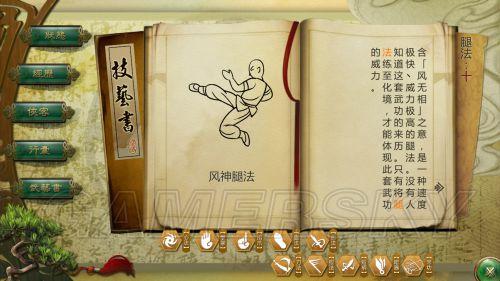 狀態
經歷
俠客
行囊
武藝書
技藝書
风神腿法
腿法:十
含「风无相」之意，是一种速度
极快、威力极高的腿法。没有人
知道这套武功的来历。只有将腿
法练至化境，才能体现此套武功
的威力。
GAMERSKY